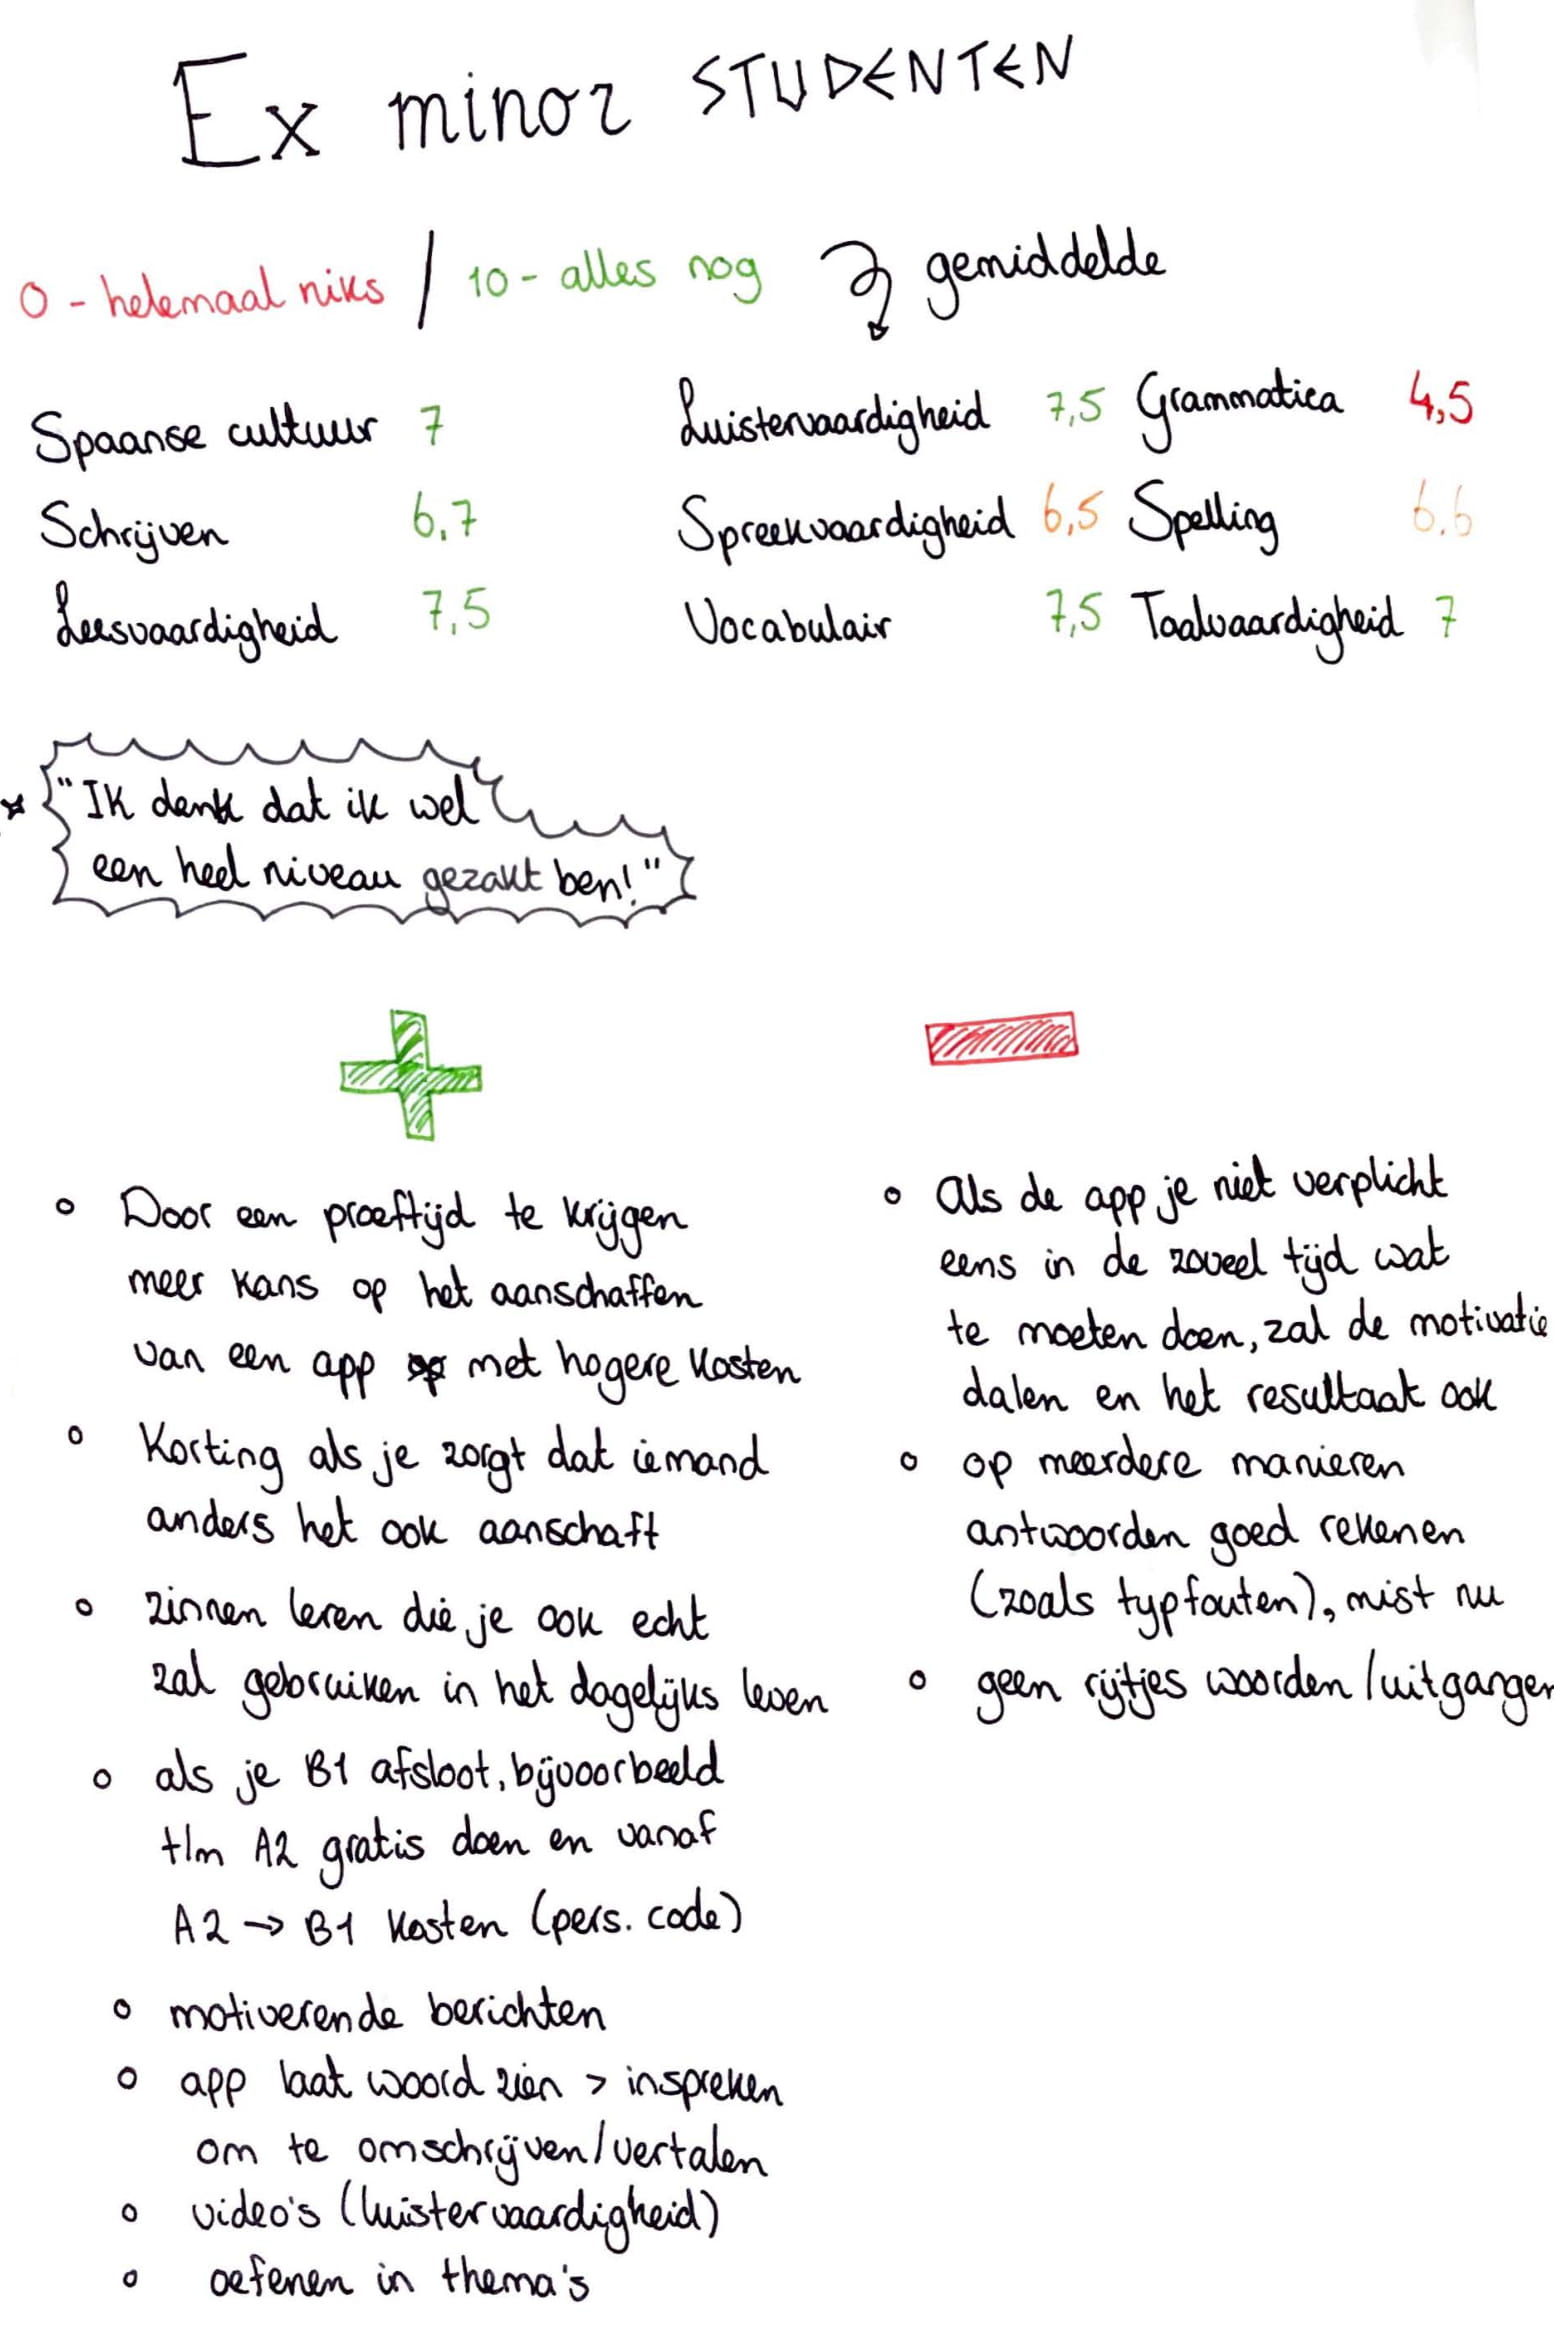 Ex minor STUDENTEN
0 - helemaal niks / 10 - alles nog gemiddelde
Spaanse cultuur 7
Schrijven 6,7
Leesvaardigheid 7,5
Luistervaardigheid 7,5
Spreekvaardigheid 6,5
Vocabulair 7,5
Grammatica 4,5
Spelling 6.6
Taalvaardigheid 7
"Ik denk dat ik wel
een heel niveau gezakt ben!"
Door een proeftijd te krijgen
meer kans op het aanschaffen
van een app met hogere kosten
Korting als je zorgt dat iemand
anders het ook aanschaft
zinnen leren die je ook echt
zal gebruiken in het dagelijks leven
als je B1 afsloot, bijvoorbeeld
t/m A2 gratis doen en vanaf
A2 → B1 kosten (pers. code)
motiverende berichten
app laat woord zien > inspreken
om te omschrijven/vertalen
video's (luistervaardigheid)
oefenen in thema's
Als de app je niet verplicht
eens in de zoveel tijd wat
te moeten doen, zal de motivatie
dalen en het resultaat ook
op meerdere manieren
antwoorden goed rekenen
(zoals typfouten), mist nu
geen rijtjes woorden/uitgangen